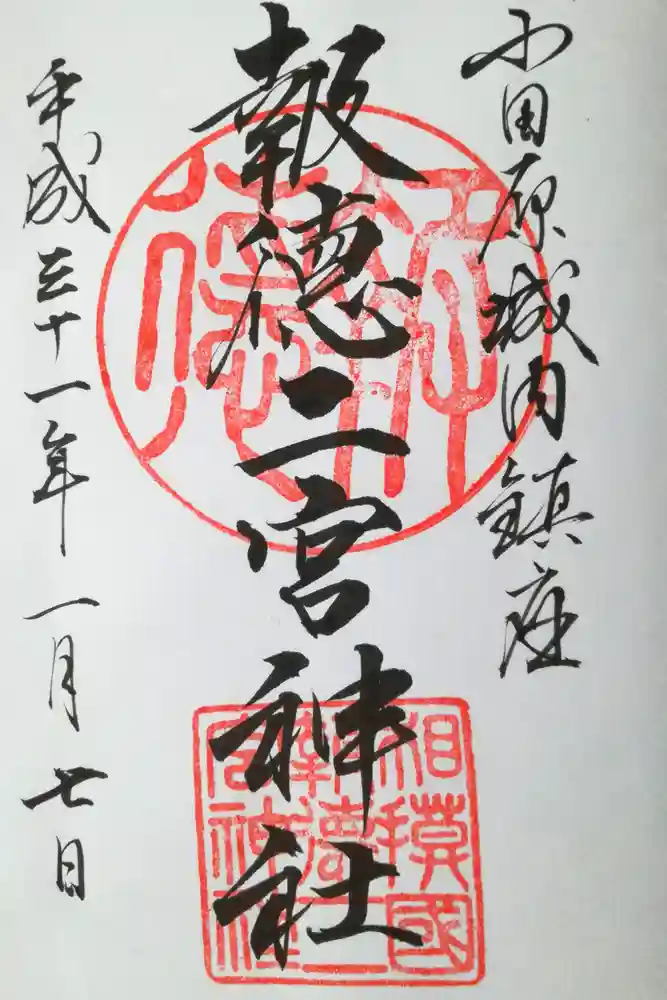 小田原城内鎮座
報徳二宮神社
平成三十一年一月七日
報徳
相模國
報徳二
宮神社